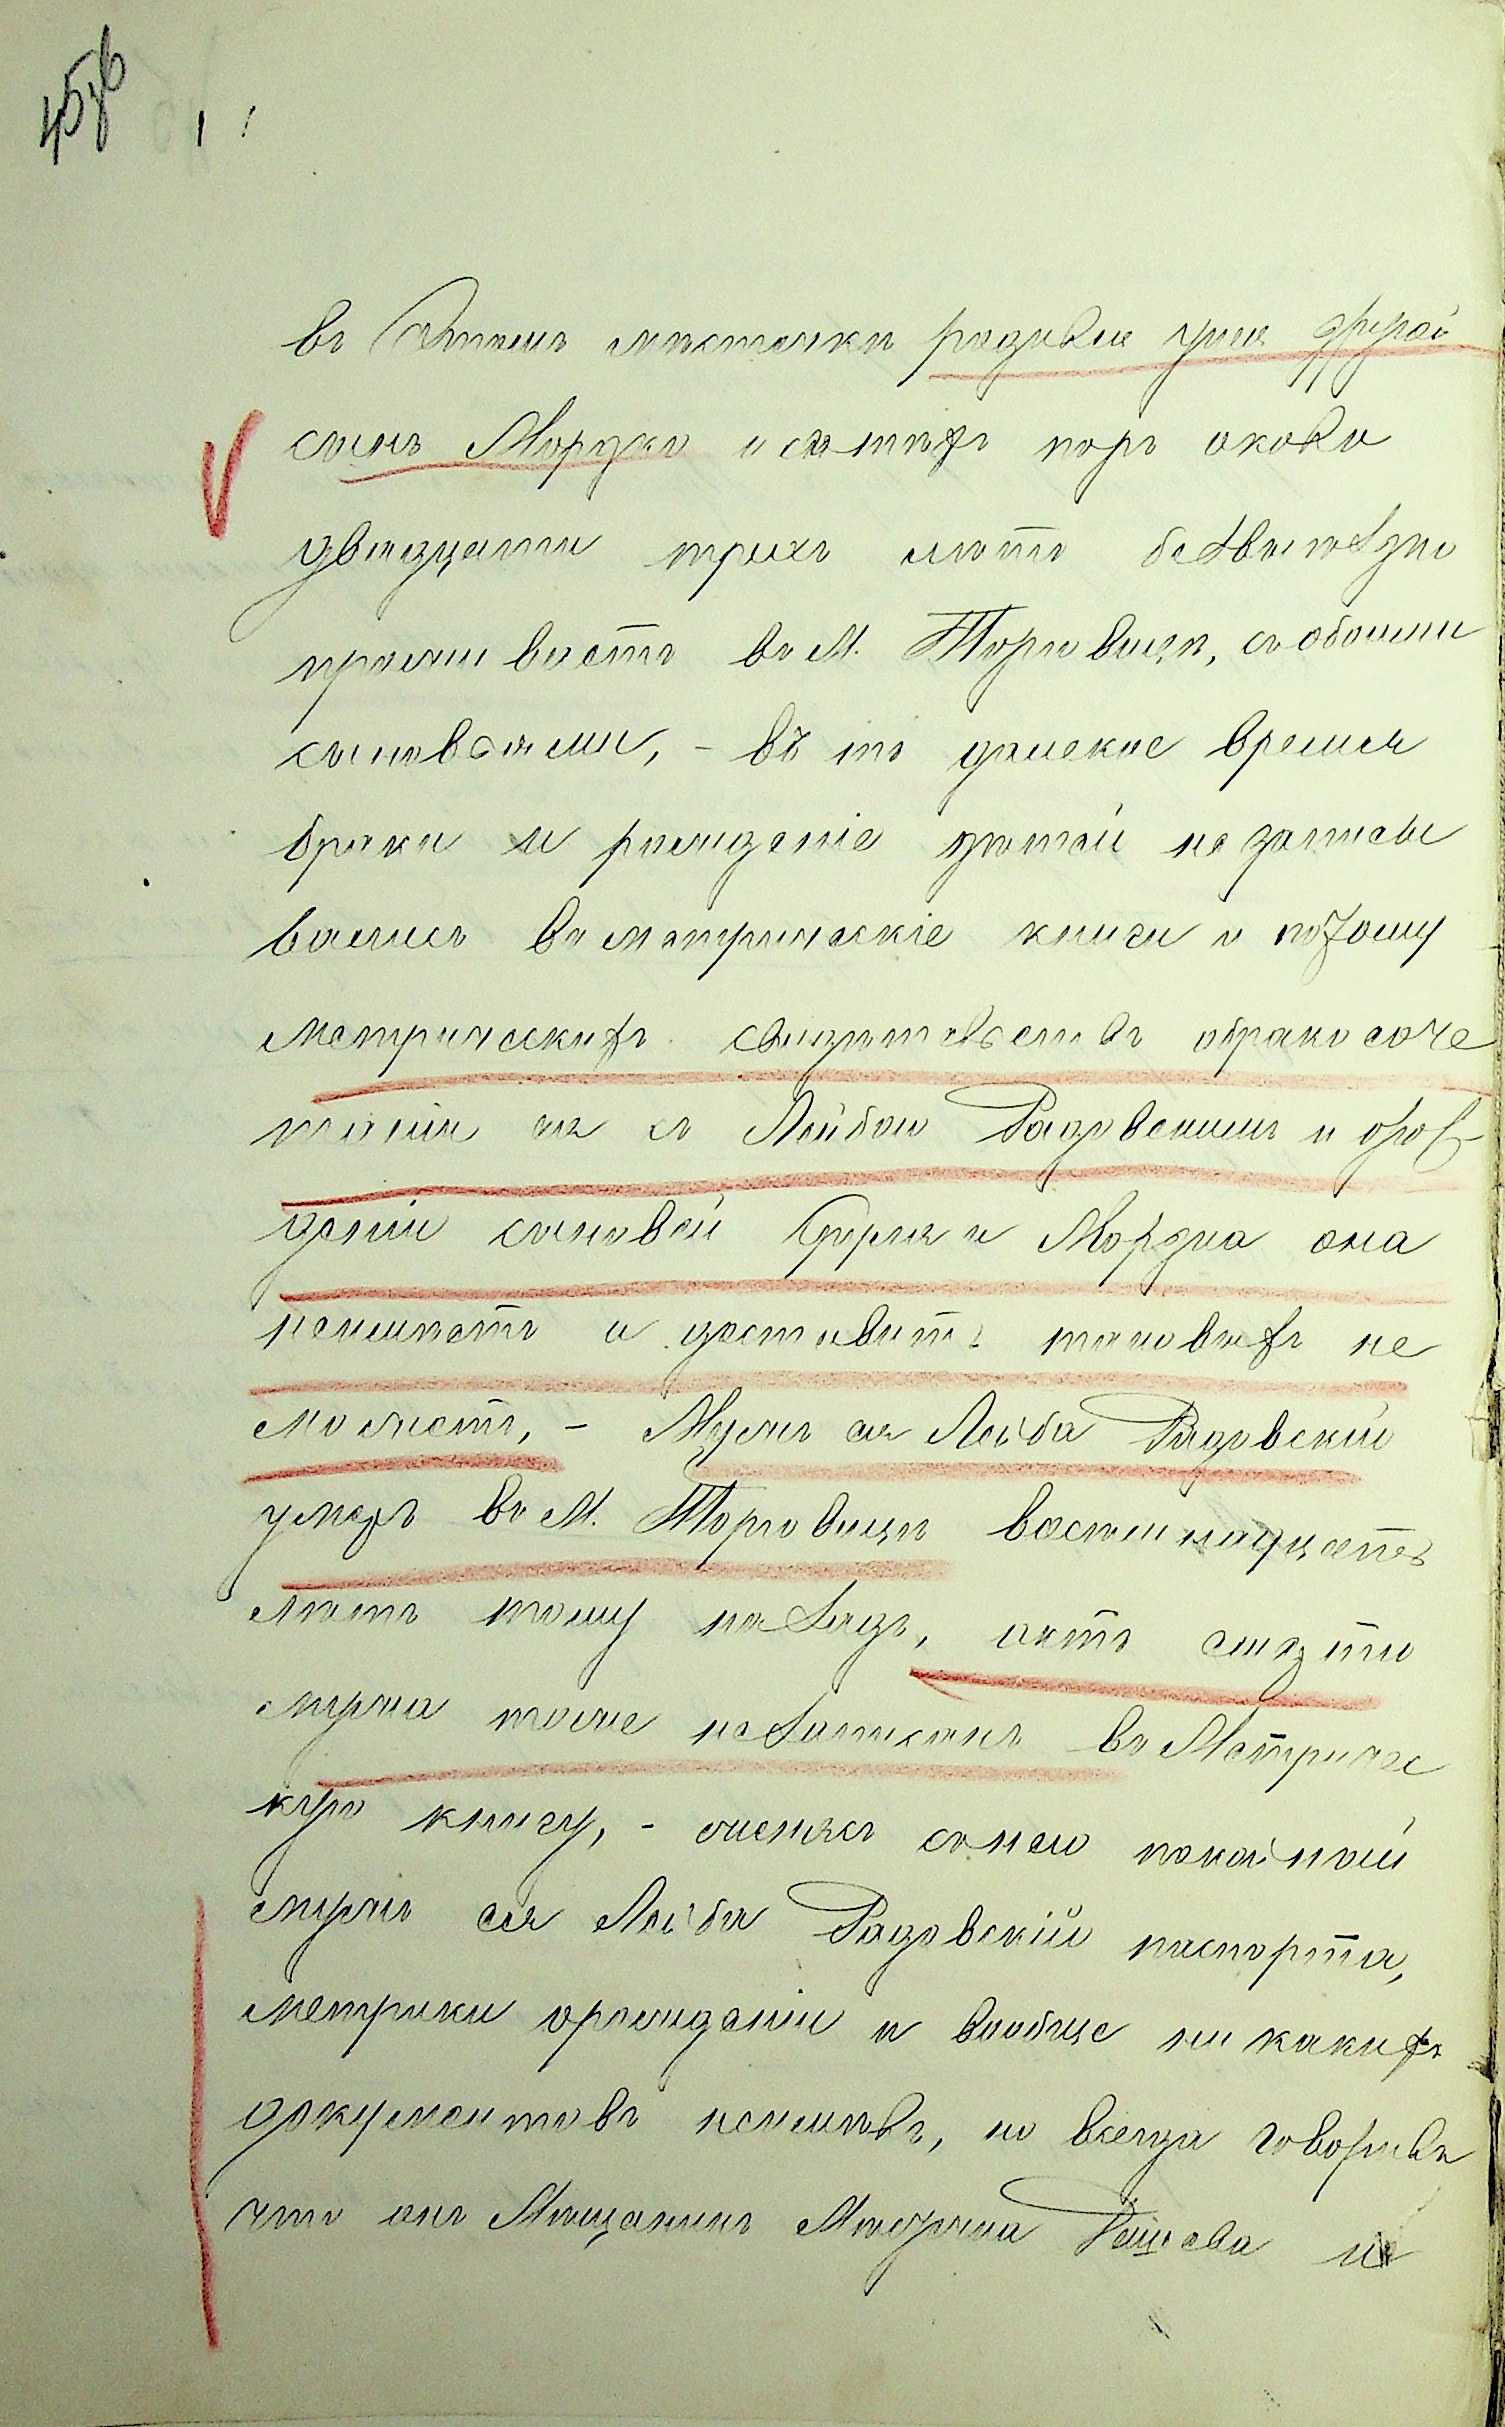 въ этомъ местечкѣ родился уже другой
сынъ Мордко и съ тѣхъ поръ около
двадцати трехъ лѣтъ безвыѣздно
проживаетъ въ М. Торговицѣ, съ обоими
сыновьями, – въ то далекое время
браки и рожденіе дѣтей не записы
вались въ метрическіе книги и поэтому
метрическихъ свидѣтельствъ о бракосоче
таніи ея съ Лейбою Радовскимъ и о рож
деніи сыновей и Мордка она
неимѣетъ и доставить таковыхъ не
можетъ, – Мужъ ея Лейба Радовскій
умеръ въ М. Торговицѣ восемнадцать
лѣтъ тому назадъ, актъ смерти
мужа тоже незаписанъ въ Метричес
кую книгу, – живя съ нею покойный
мужъ ея Лейба Радовскій паспорта,
метрики о рожденіи и вообще ни какихъ
документовъ неимѣлъ, но всегда говорилъ
что онъ Мѣщанинъ Мѣстечка и